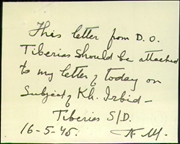 This letter from D.O.
Tiberias should be attached
to my letter of today on
Subject of Kh. Irbid —
Tiberias S/D.
16-5-45.